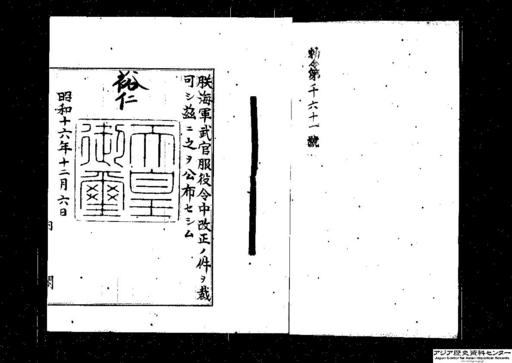 勅令第千六十一號
朕海軍武官服役令中改正ノ件ヲ裁
可シ茲ニ之ヲ公布セシム
裕仁
天皇御璽
昭和十六年十二月六日
内閣
アジア歴史資料センター
Japan Center for Asian Historical Records